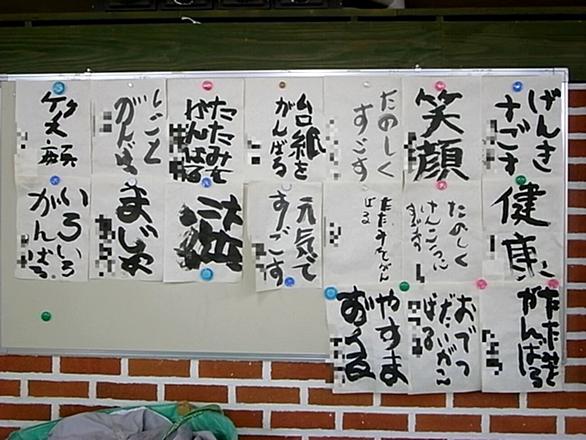 げんき
すごす
笑顔
たのしく
すごす
台紙を
がんばる
たたみを
がんばる
しごと
がんばる
笑顔
健康に
たのしく
けんこうに
すごす
たたみをがん
ばる
元気で
すごす
まじめ
いろいろ
がんばる
たたみを
がんばる
おでつ
だいがん
ばる
やすま
ずくる